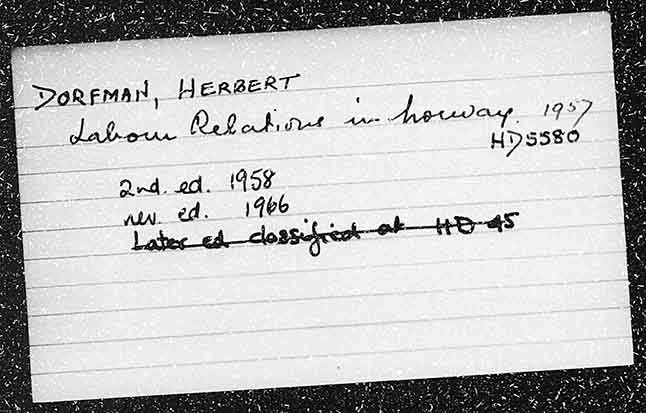 DORFMAN, HERBERT
Labour Relations in Norway. 1957
HD5580
2nd. ed. 1958
rev. ed. 1966
Later ed classified at HD 45